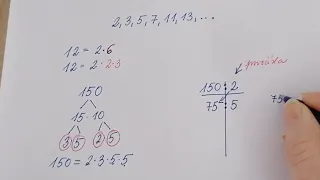 2, 3, 5, 7, 11, 13, ...
12 = 2·6
12 = 2·2·3
150
15·10
3 5 2 5
150 = 2·3·5·5
150 : 2
75 : 5
75